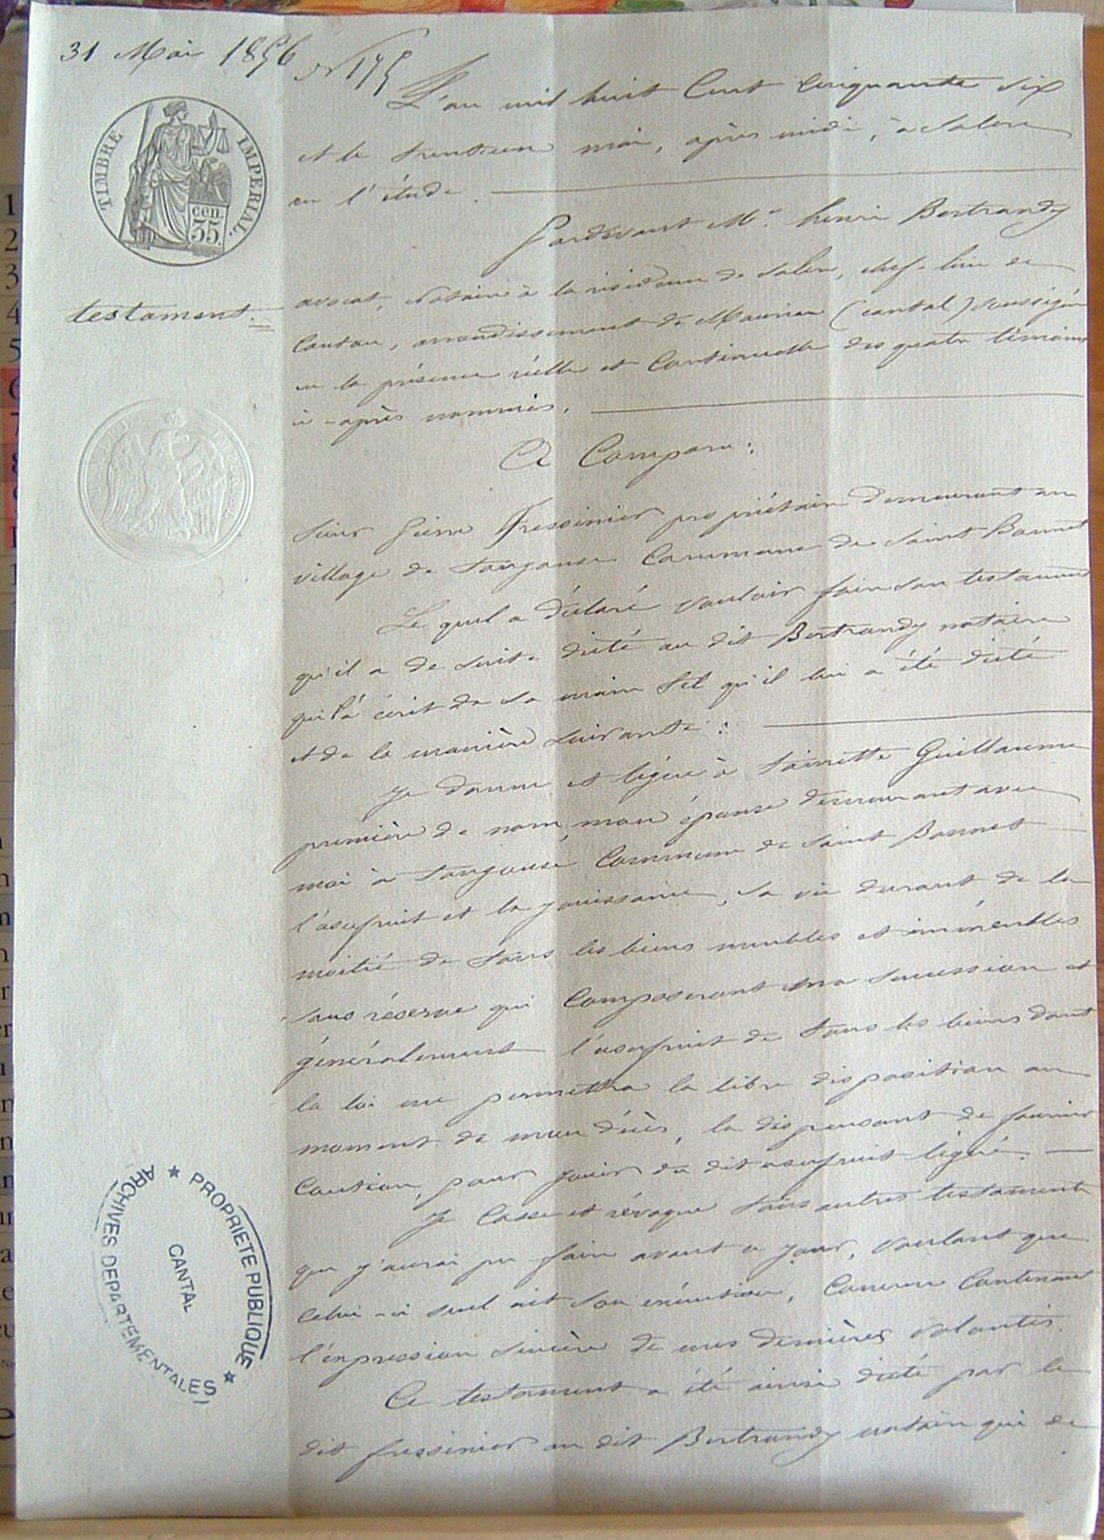 31 Mai 1856
N 175
TIMBRE IMPERIAL.
cen.
35.
testament.
L'an mil huit Cent Cinquante Six
et le trente un mai, après midi, à Salers
en l'étude.
Pardevant Me. henri Bertrandy
avocat, Notaire à la résidence de Salers, chef-lieu de
Canton, arrondissement de Mauriac (cantal) soussigné
en la présence réelle et Continuelle des quatre témoins
ci-après nommés.
A Comparu:
Sieur Pierre Fressinier propriétaire demeurant au
village de Commune de Saint Bonnet
Le quel a déclaré vouloir faire son testament
qu'il a de suite dicté au dit Bertrandy notaire
qui l'a écrit de sa main tel qu'il lui a été dicté
et de la manière suivante:
Je donne et lègue à Toinette Guillaume
première de nom, mon épouse demeurant avec
moi à Commune de Saint Bonnet
l'usufruit et la jouissance, sa vie durant de la
moitié de tous les biens meubles et immeubles
sans réserve qui Composeront ma succession et
généralement l'usufruit de tous les biens dont
la loi me permettra la libre disposition au
moment de mon décès, la dispensant de fournir
Caution, pour jouir du dit usufruit légué.
Je Casse et révoque tous autres testaments
que j'aurai pu faire avant ce jour, voulant que
celui-ci seul ait son exécution, Comme Contenant
l'expression sincère de mes dernières volontés.
Ce testament a été ainsi dicté par le
dit fressinier au dit Bertrandy notaire qui de
★ PROPRIETE PUBLIQUE ★
ARCHIVES DEPARTEMENTALES
CANTAL